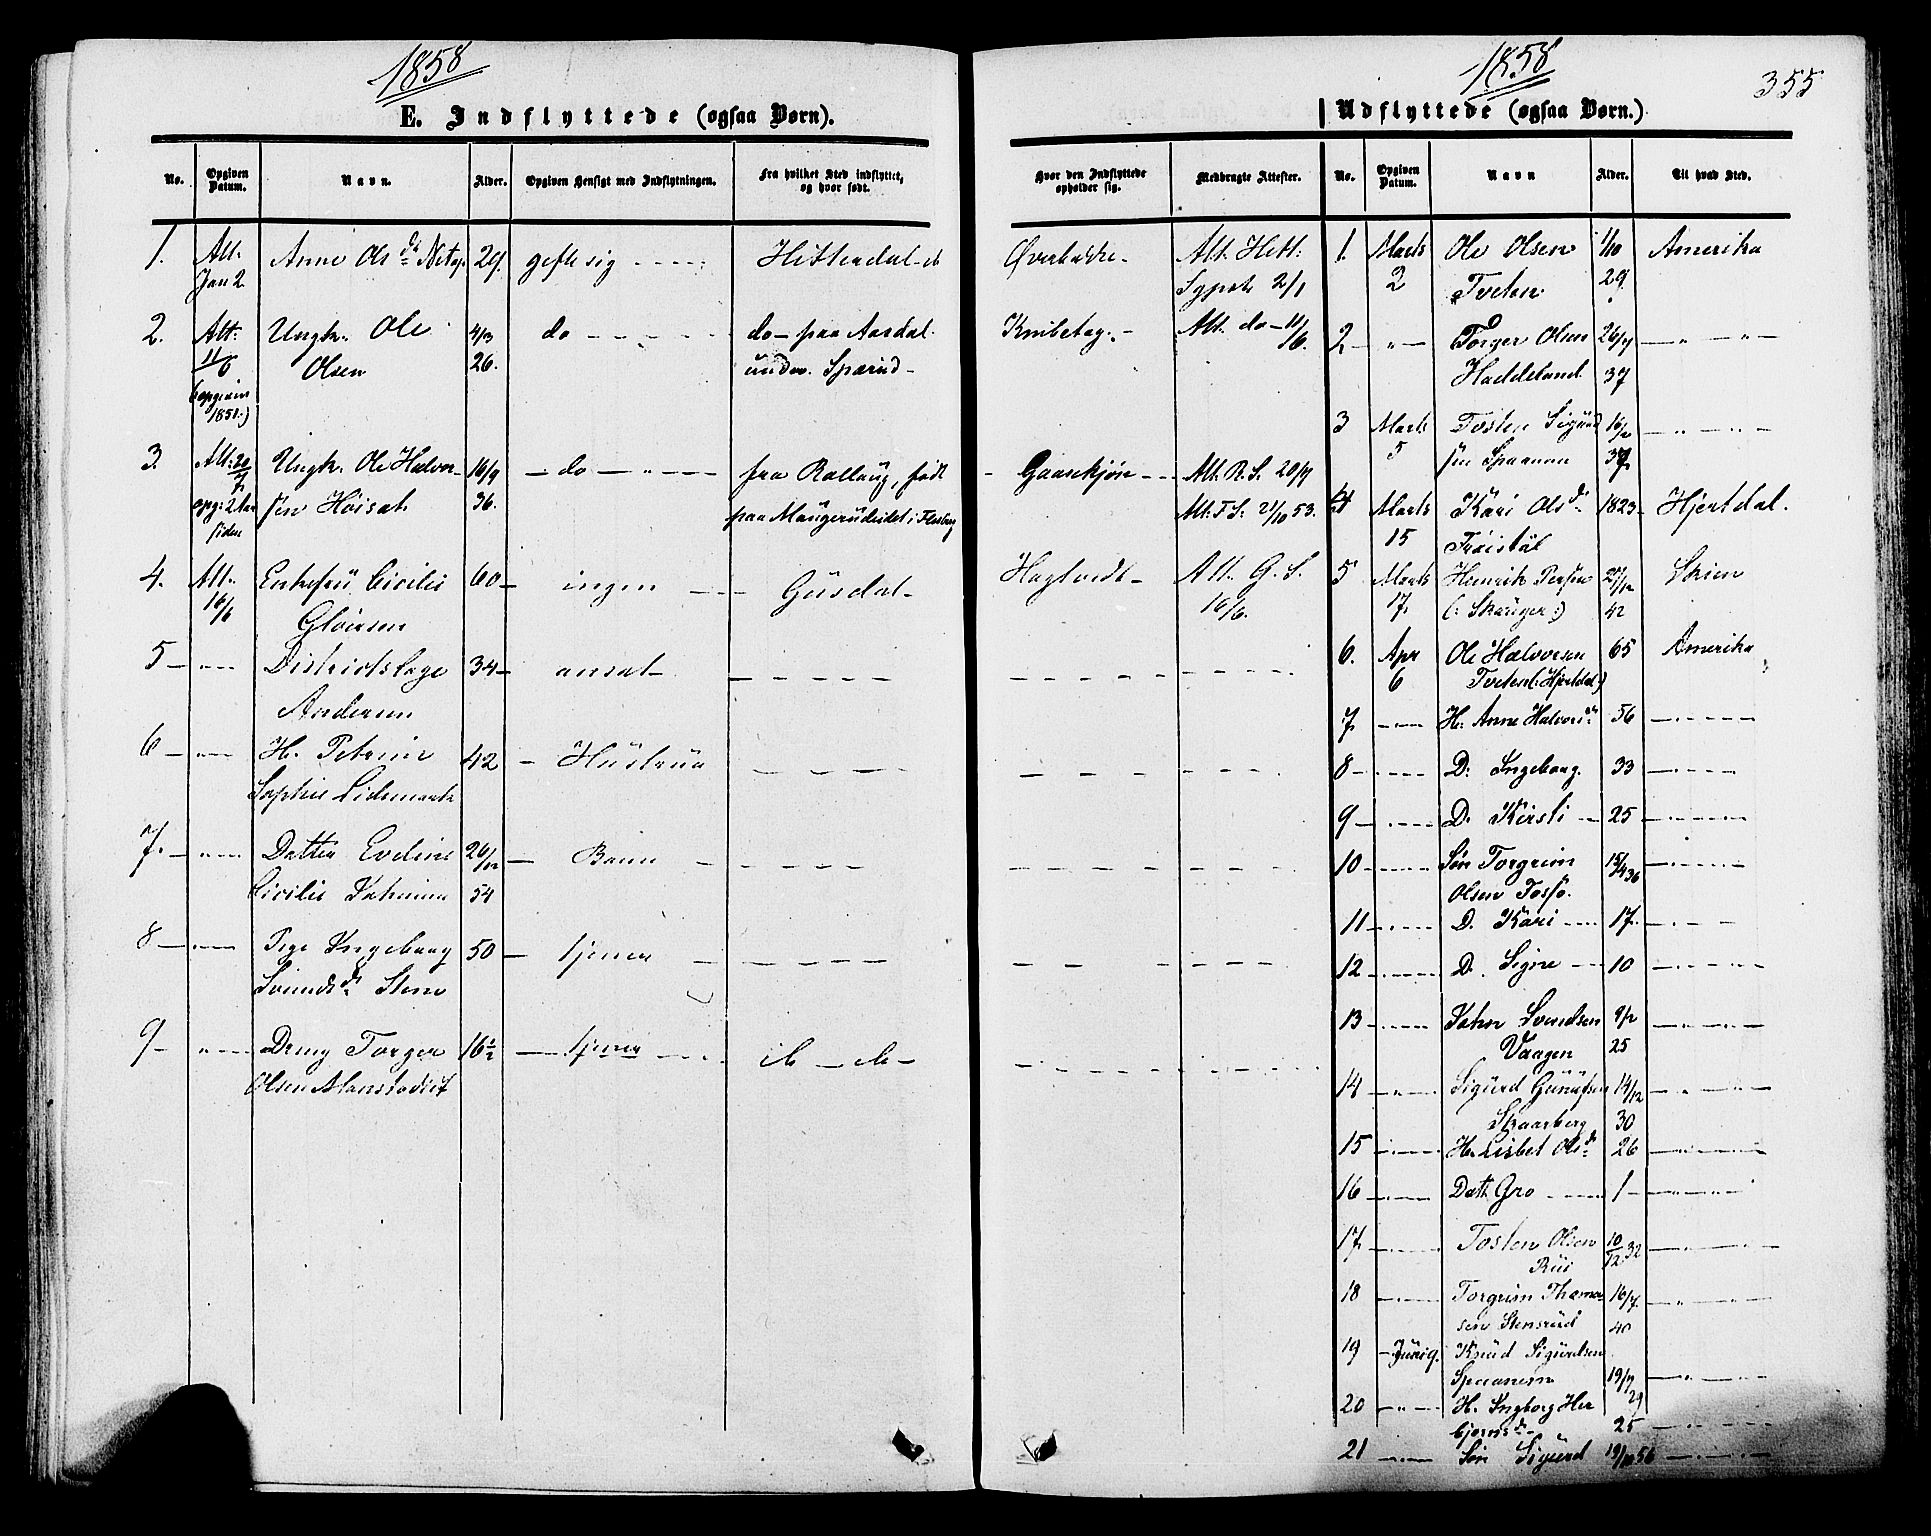 1858
E. Indflyttede (ogsaa Børn).
No. Opgiven Datum. Navn. Alder. Opgiven Hensigt med Indflytningen. Fra hvilket Sted indflyttet, og hvor født. Hvor den Indflyttede opholder sig. Medbragte Attester.
1. Att. Anne Olsd. 29. gifte sig Hitterdal Att. Hitt:
Jan 2 2/1
2. Att. Ungk. Ole 4/3 do do paa Aasdal Att. do 11/6.
11/6 Olsen 26. under
opgiven
1851.)
3. Att. 20/9 Ungk. Ole Halvor- 16/9 do fra Rollaug, født Gaaskjøn Att. R. S. 20/9
opg: 2 Aar sen Høisæt 36. paa i Flesberg Att. F. S. 21/10 53.
siden
4. Att. Enkefru Cicilie 60 ingen Gusdal Att. G. S.
16/6 16/6.
5 Districtslæge 34 ansat
Andersen
6 H. Petrine 42 Hustrue
Sophie
7. Datter Eveline 26/12 Barn
Cicilie 54
8 Pige Ingeborg 50 tjener
Svendsd. Stene
9 Dreng Torger 16½ tjener
Olsen
1858
355
Udflyttede (ogsaa Børn.)
No. Opgiven Datum. Navn Alder. Til hvad Sted.
1. Marts Ole Olsen 1/10 Amerika
2 Tveten 29
2 Torger Olsen 26/7
Haddeland 37
3 Marts Tosten Sigurd
5 sen Spaanem
4 Marts Kari Olsd. 1823 Hjertdal.
15
5 Marts Henrik 27/12 Skien
17. 42
6. Apr Ole Halvorsen 65 Amerika
6 Tveten (: Hjertdal)
7. H. Anne Halvorsd. 56
8 D. Ingeborg. 33
9 D. Kirsti 25
10 Søn Torgrim 15/4 36
Olsen
11 D. Kari 17.
12 D. Signe 10
13 John Svendsen
Vaagen 25
14 Sigurd 14/12
Skaarberg 30
15 H. Lisbet Olsd. 26
16 Datt. Gro 1
17 Tosten Olsen 10/12 32
18 Torgrim 16/7
sen Stensrud 40
19 Juni 9. Knud Sigurdsen
Spaanem 19/7
29
20 H. Ingborg Her
bjørnsd. 25
21 Søn Sigurd 19/10 56